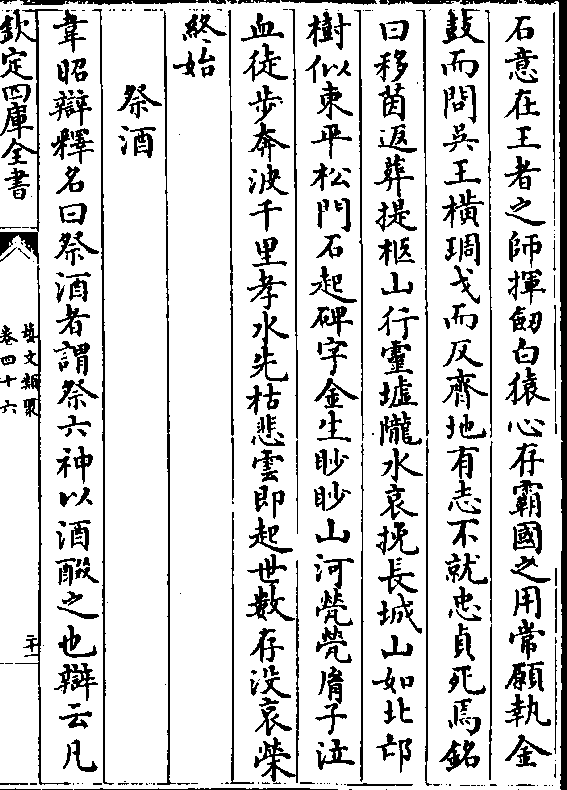 石意在王者之師揮劒白猿心存霸國之用常願執金
鼓而問吳王橫琱戈而反齊地有志不就忠貞死焉銘
曰移茵返葬提柩山行靈墟隴水哀挽長城山如北邙
樹似東平松門石起碑字金生眇眇山河煢煢胤子泣
血徒步奔波千里孝水先枯悲雲即起世數存没哀榮
終始
祭酒
韋昭辯釋名曰祭酒者謂祭六神以酒醊之也辯云凡
欽定四庫全書
藝文類聚
卷四十六
二十